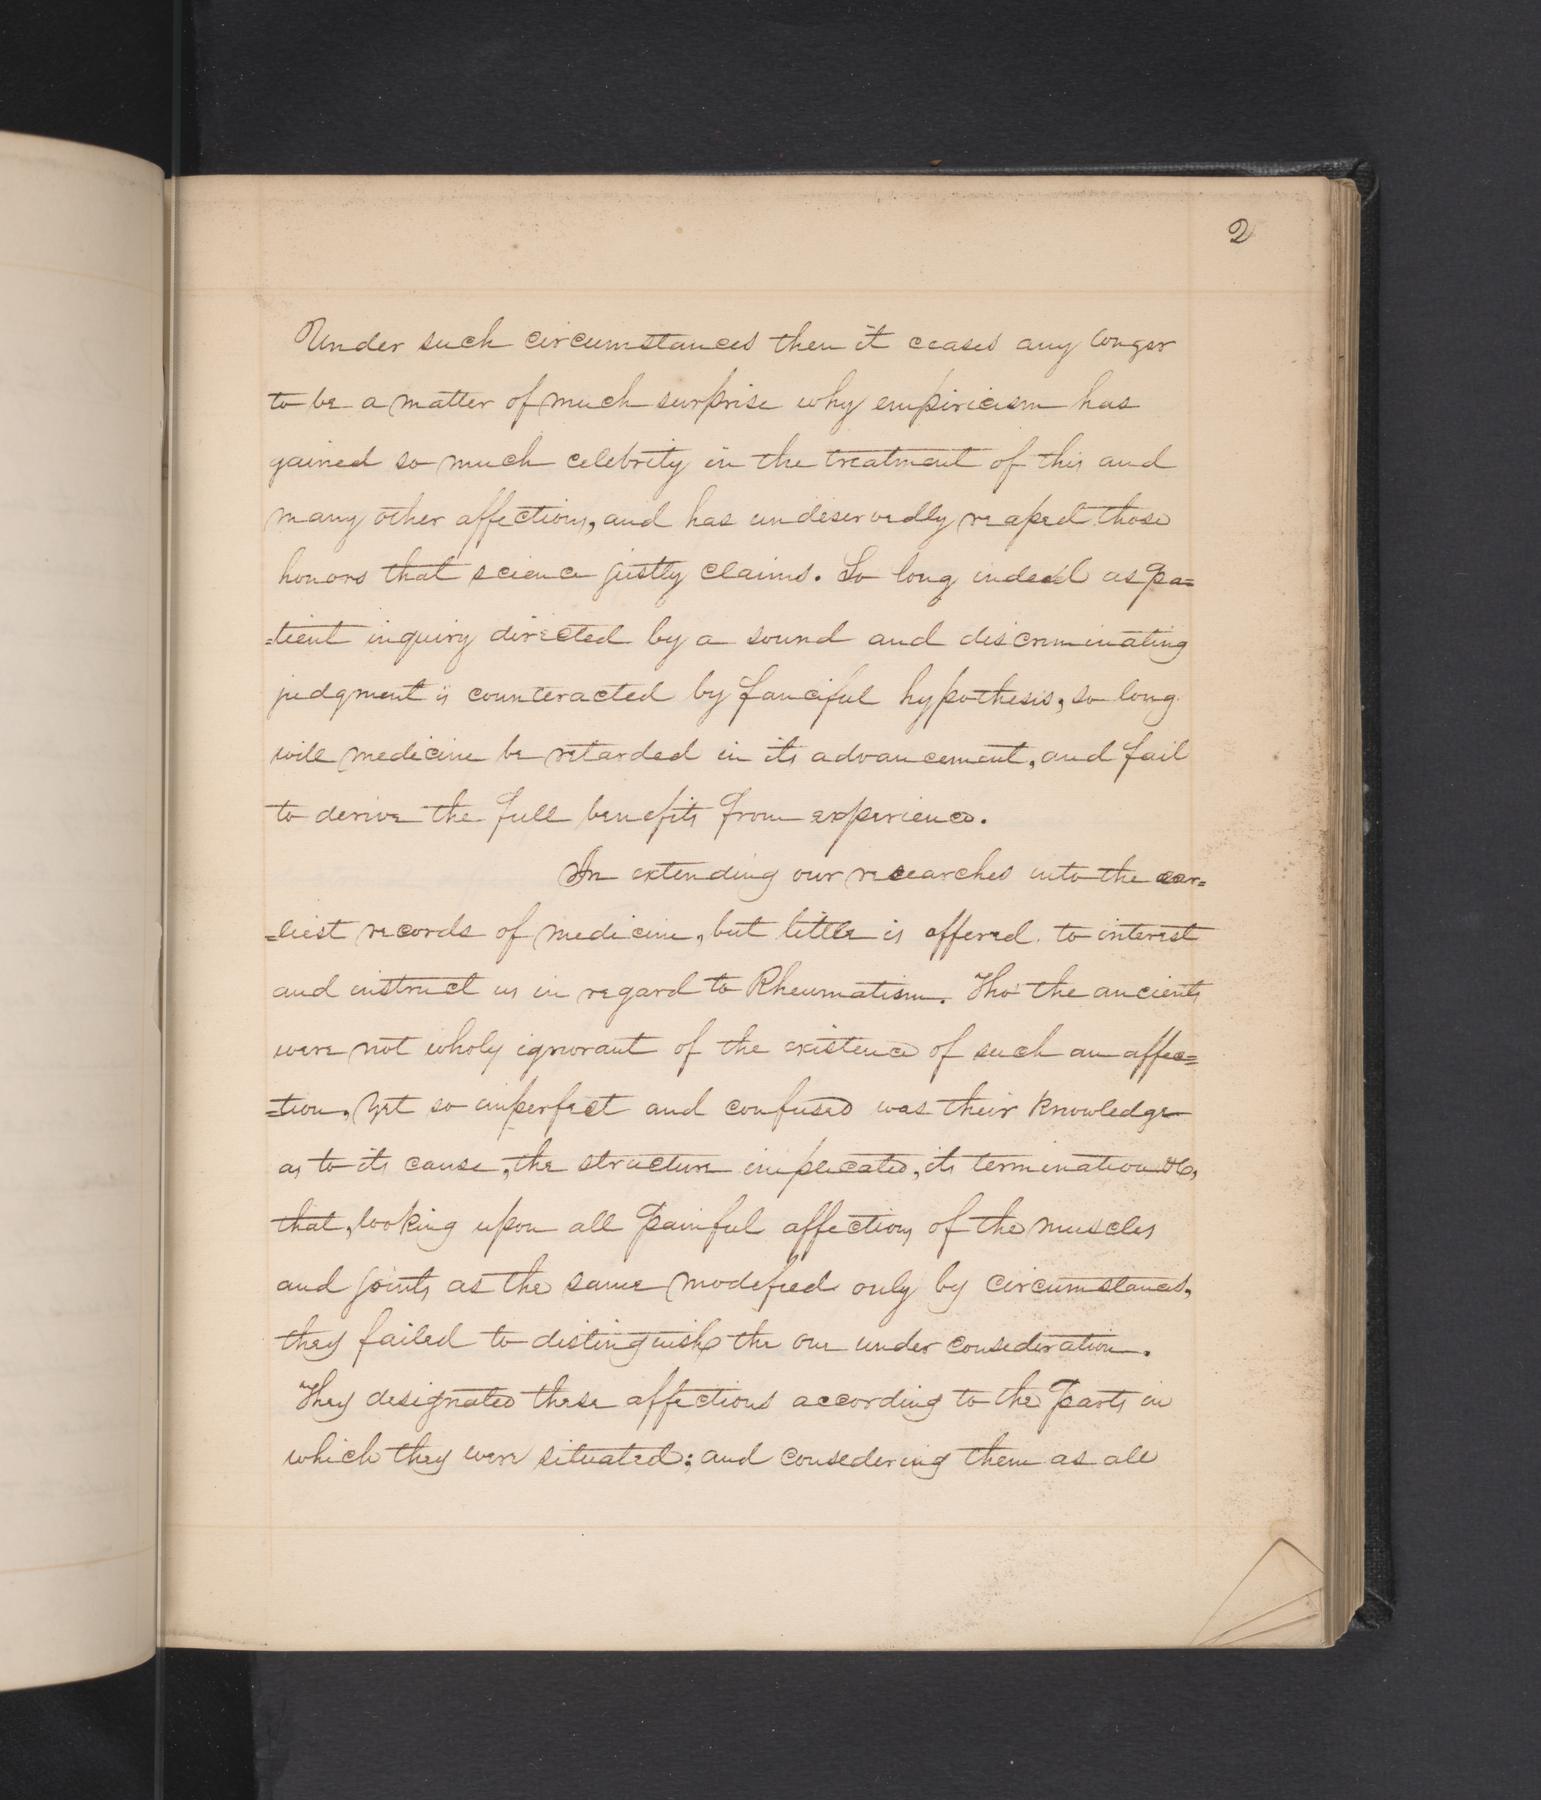 2
Under such circumstances then it ceases any longer
to be a matter of much surprise why empiricism has
gained so much celebrity in the treatment of this and
many other affections, and has undeservedly reaped those
honors that science justly claims. So long indeed as pa=
=tient inquiry directed by a sound and discriminating
judgment is counteracted by fanciful hypothesis, so long
will medicine be retarded in its advancement, and fail
to derive the full benefits from experience.
In extending our researches into the ear=
=liest records of medicine, but little is offered to interest
and instruct us in regard to Rheumatism. Tho' the ancients
were not wholy ignorant of the existence of such an affec=
=tion, yet so imperfect and confused was their knowledge
as to its cause, the structure implicated, its termination &c,
that, looking upon all painful affections of the muscles
and joints as the same modefied only by circumstances,
they failed to distinguish the one under consideration.
They designated these affections according to the parts in
which they were situated; and consedering them as all